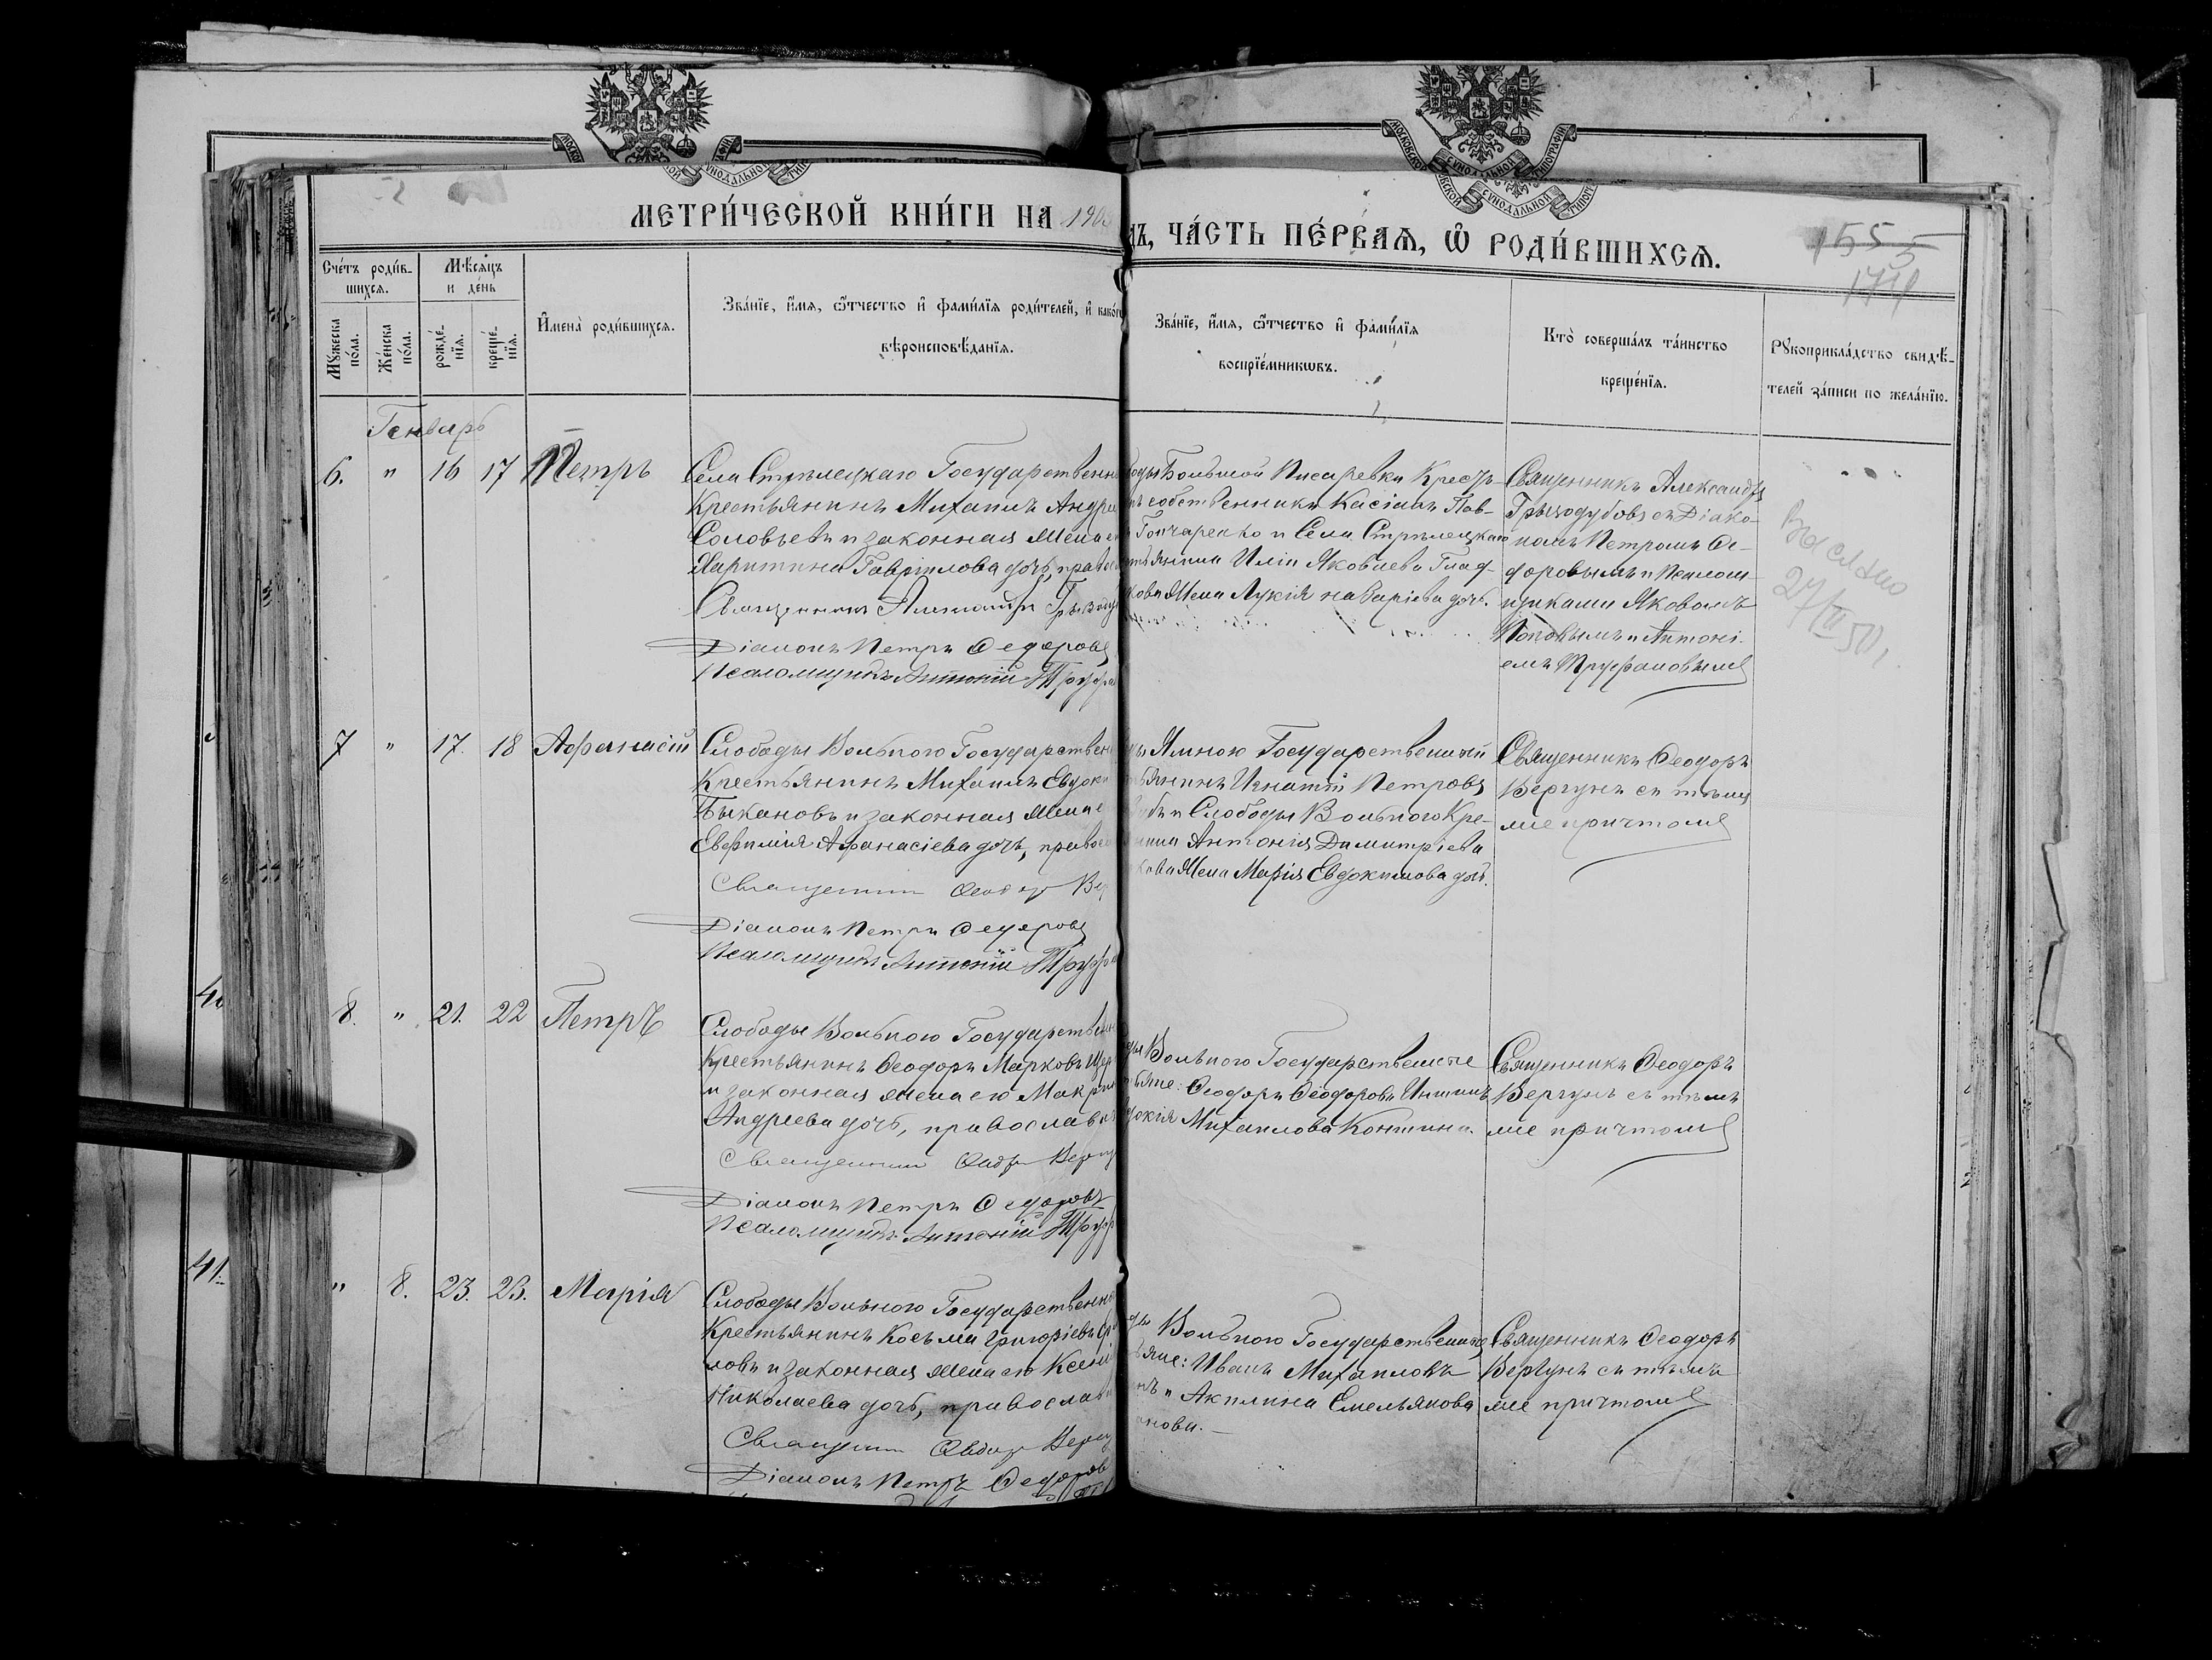 МЕТРИ́ЧЕСКОЙ КНИ́ГИ НА 190
ЧА́СТЬ ПЕ́РВАѦ, Ѽ РОДИ́ВШИХСѦ.
155
Сче́тъ роди́в-
шихсѧ.
Мꙋжеска
по́ла.
Же́нска
по́ла.
Мѣ́сѧцъ
и де́нь
рожде́-
нїѧ.
креще́-
нїѧ.
И҆мена̀ роди́вшихсѧ.
Зва́нїе, и҆́мѧ, ѻ҆́тчество и҆ фами́лїѧ роди́телей, и҆ како́г
вѣроисповѣ́данїѧ.
Зва́нїе, и҆́мѧ, ѻ҆́тчество и҆ фами́лїѧ
воспрїе́мникѡвъ.
Кто̀ соверша́лъ та́инство
креще́нїѧ.
Рꙋкоприкла́дство свидѣ́-
телей за́писи по жела́нїю.
Генварь
6. " 16 17 Петръ
Села Стрѣлецкаго Государственн
Крестьянинъ Михаилъ Андре
Соловьевъ и законная жена е
Харитина Гаврилова дочь, правос
Священникъ Александръ
Діаконъ Петръ Ѳедоровъ
Псаломщикъ Антоній Труфа
Большой Писаревки Крест
собственникъ Касіанъ Пав-
Гончаренко и Села Стрѣлецкаго
Иліи Яковлева Глад-
кова жена Лукія дочь.
Священникъ Александръ
съ Діако-
номъ Петромъ Ѳе-
доровымъ и Псалом-
щиками Яковомъ
Поповымъ и Антоні-
емъ Труфановымъ
Выслано
27/III 50 г.
7 " 17. 18 Аѳанасій
Слободы Вольного Государствен
Крестьянинъ Михаилъ Евдоки
Быкановъ и законная жена е
Евфимія Аѳанасіева дочь, правос
Священникъ Ѳеодоръ Вер
Діаконъ Петръ Ѳедоровъ
Псаломщикъ Антоній Труфа
Ямною Государственный
Игнатій Петровъ
и Слободы Вольного Кре-
Антонія Димитріева
жена Марія Евдокимова дочь.
Священникъ Ѳеодоръ
Вергунъ съ тѣмъ
же причтомъ
8. " 21. 22 Петръ
Слободы Вольного Государствен
Крестьянинъ Ѳеодоръ Марковъ Щер
и законная жена его Макри
Андреева дочь, православн
Священникъ Ѳеодоръ Вергу
Діаконъ Петръ Ѳедоровъ
Псаломщикъ Антоній Труф
Вольного Государственные
Ѳеодоръ Ѳеодоровъ
Михаилова
Священникъ Ѳеодоръ
Вергунъ съ тѣмъ
же причтомъ
41.
" 8. 23. 23. Марія
Слободы Вольного Государственн
Крестьянинъ Косьма Григоріевъ
ловъ и законная жена его Ксені
Николаева дочь, православн
Священникъ Ѳеодоръ Вергу
Діаконъ Петръ Ѳедоров
Вольного Государственные
Иванъ Михаиловъ
и Акилина Емельянова
нова.
Священникъ Ѳеодоръ
Вергунъ съ тѣмъ
же причтомъ